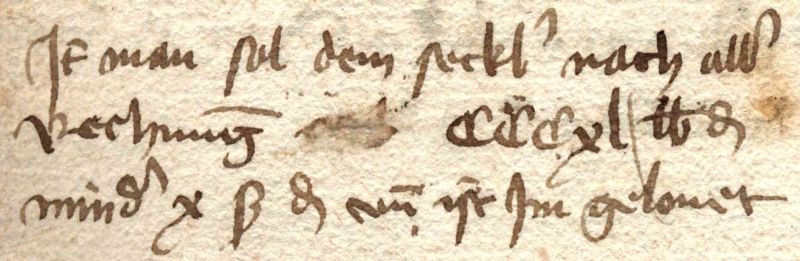 It man sol dem seckl' nach all'
rechnunḡ CCCxl lb d
mind' x ß d vn̄ ist Im gelonet